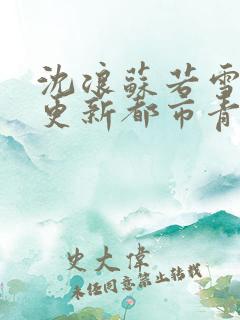 沈浪蘇若雪
更新都市青
史大偉
未经同意禁止转载